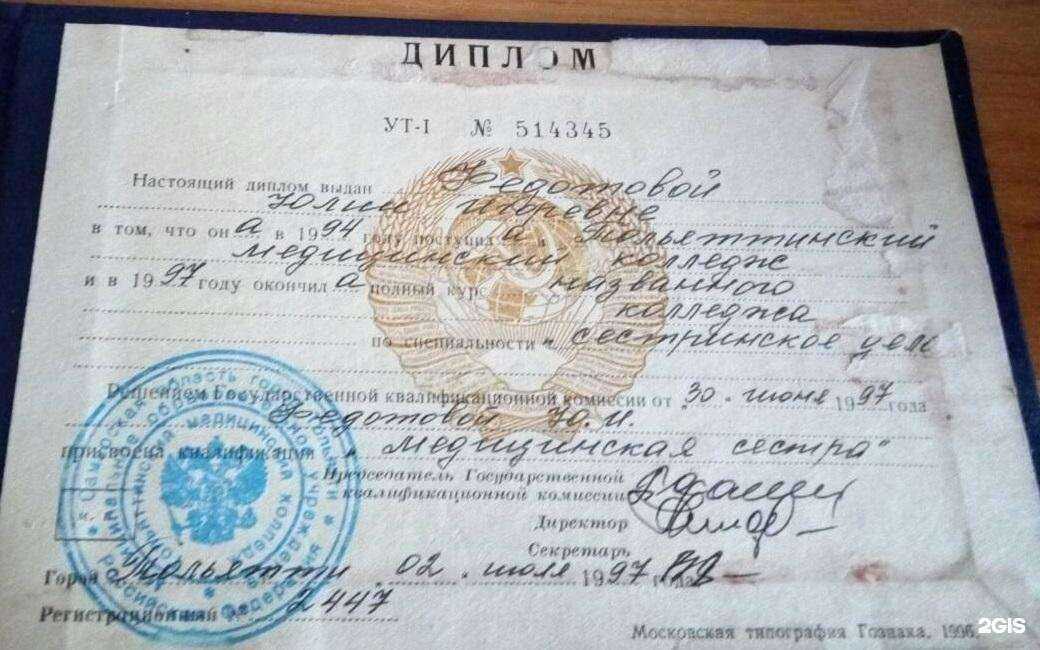 ДИПЛОМ
УТ-I № 514345
Настоящий диплом выдан Федотовой
Юлии Игоревне
в том, что она в 1994 году поступила в Тольяттинский
медицинский колледж
и в 1997 году окончила полный курс названного
колледжа
по специальности „ сестринское дело
Решением Государственной квалификационной комиссии от 30 июня 1997 года
Федотовой Ю.И.
присвоена квалификация „ медицинская сестра"
Председатель Государственной
квалификационной комиссии
Директор
Секретарь
Город Тольятти 02 июля 1997 года
Регистрационный № 2447
Московская типография Гознака. 1996.
2GIS